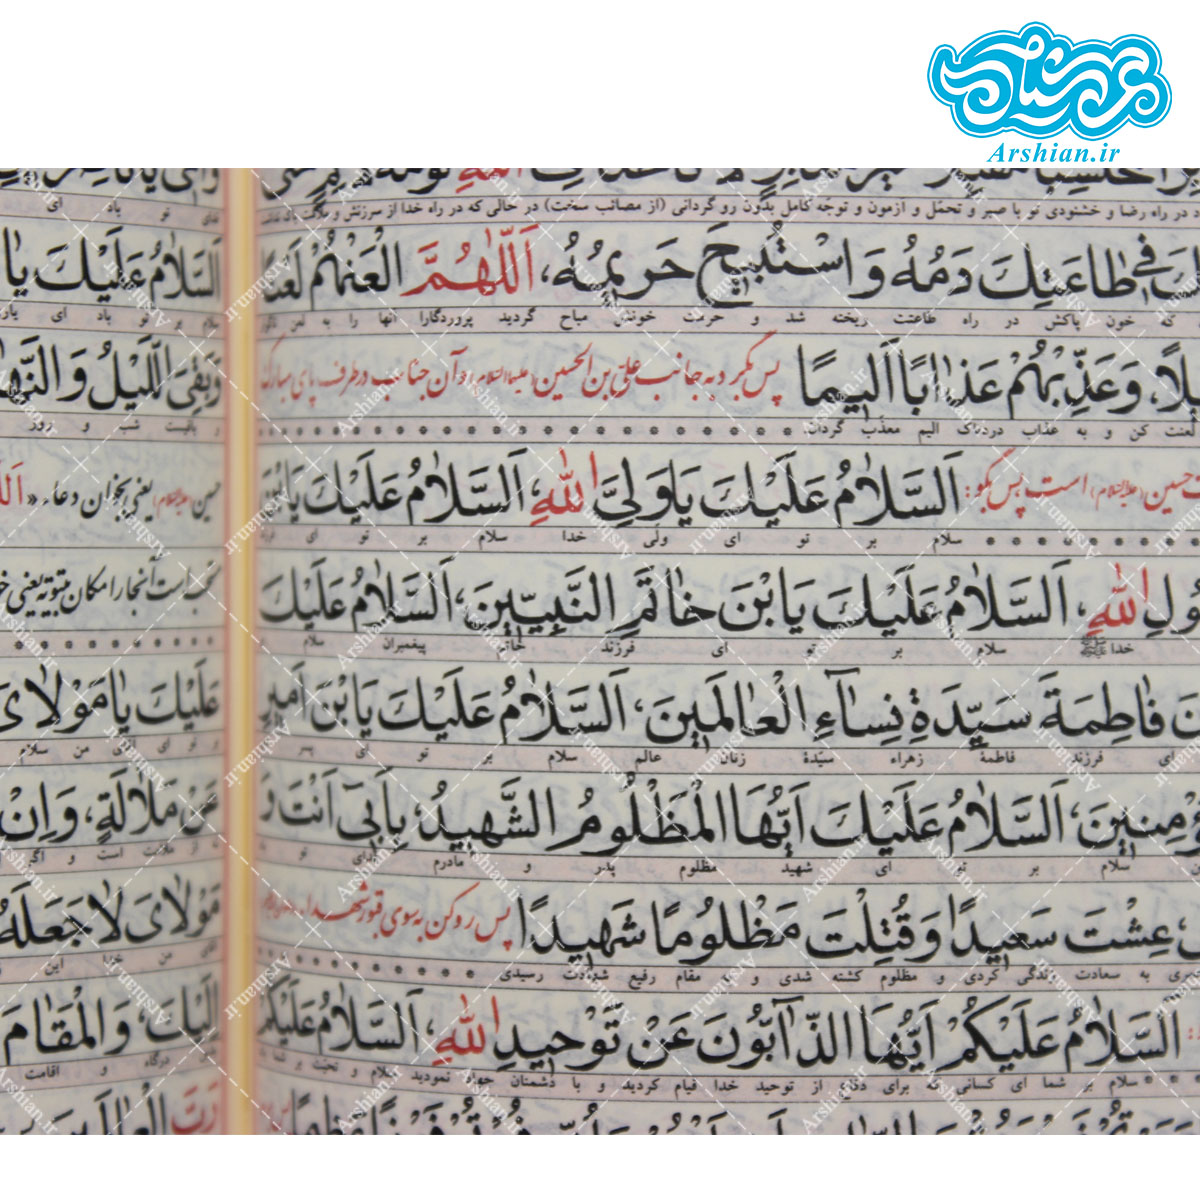 عرشیان
Arshian.ir
در راه رضا و خشنودی تو با صبر و تحمّل و آزمون و توجّه کامل بدون رو گردانی (از مصائب سخت) در حالی که در راه خدا از سرزنش و ملامت
فی طاعَتِكَ دَمُهُ وَاسْتُبیحَ حَریمُهُ، اَللّٰهُمَّ الْعَنْهُمْ لَعْنًا
که خون پاکش در راه طاعتت ریخته شد و حرمت خونش مباح گردید پروردگارا آنها را به لعن
وَعَذِّبْهُمْ عَذابًا اَلیمًا پس برگرد به جانب علیّ بن الحسین (علیهما السّلام) و آن جناب در طرف پای مبارک
لعنت کن و به عذاب دردناک الیم معذّب گردان
حسین (علیه السلام) است پس بگو: اَلسَّلامُ عَلَیْكَ یا وَلِیَّ اللهِ، اَلسَّلامُ عَلَیْكَ یَا بْنَ
سلام بر تو ای ولی خدا سلام بر تو ای
اللهِ، اَلسَّلامُ عَلَیْكَ یَا بْنَ خاتَمِ النَّبِیّینَ، اَلسَّلامُ عَلَیْكَ
خدا ﷺ سلام بر تو ای فرزند خاتم پیغمبران سلام
فاطِمَةَ سَیِّدَةِ نِساۤءِ الْعالَمینَ، اَلسَّلامُ عَلَیْكَ یَا بْنَ اَمیرِ
ای فرزند فاطمهٔ زهراء سیّدهٔ زنان عالم سلام بر تو ای پسر
اَلسَّلامُ عَلَیْكَ اَیُّهَا الْمَظْلُومُ الشَّهیدُ، بِاَبی اَنْتَ وَ
سلام بر تو ای شهید مظلوم پدر و مادرم فدای تو
عِشْتَ سَعیدًا وَ قُتِلْتَ مَظْلُومًا شَهیدًا پس رو کن به سوی قبور شهداء
به سعادت زندگی کردی و مظلوم کشته شدی و به مقام رفیع شهادت رسیدی
اَلسَّلامُ عَلَیْكُمْ اَیُّهَا الذّاۤبُّونَ عَنْ تَوْحیدِ اللهِ، اَلسَّلامُ عَلَیْكُمْ
سلام بر شما ای کسانی که برای دفاع از توحید خدا قیام کردید و با دشمنان جهاد نمودید سلام و تحیت بر شما
تو باد ای
اَلسَّلامُ عَلَیْكَ یا
سلام بر تو باد ای
وَ بَقِیَ اللَّیْلُ وَ النَّهارُ
باقیست شب و روز
حسین (علیه السلام) یعنی بخوان دعاء «
است آنجا را مکان
عَلَیْكَ یا مَوْلایَ
بر تو ای من سلام
عَنْ مَلالَةٍ، وَ اِنْ
از ملالت است و اگر
مَوْلایَ لا جَعَلَهُ
من خدا این
اِلَیْكَ، وَ الْمَقامَ
درگاه و اقامت
رَبَّ الْعالَمینَ